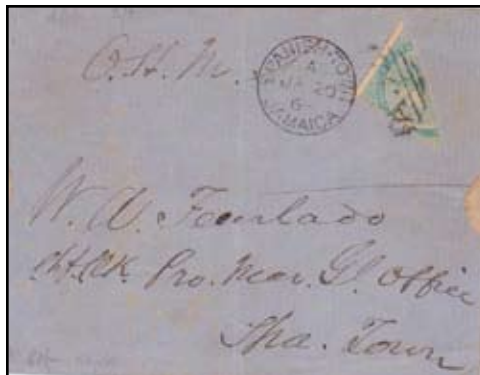 O.H.M.
SPANISH-TOWN
A
20
6
JAMAICA
A
W. A. Feurtado
Pro. Mar. Gl. Office
Spa. Town